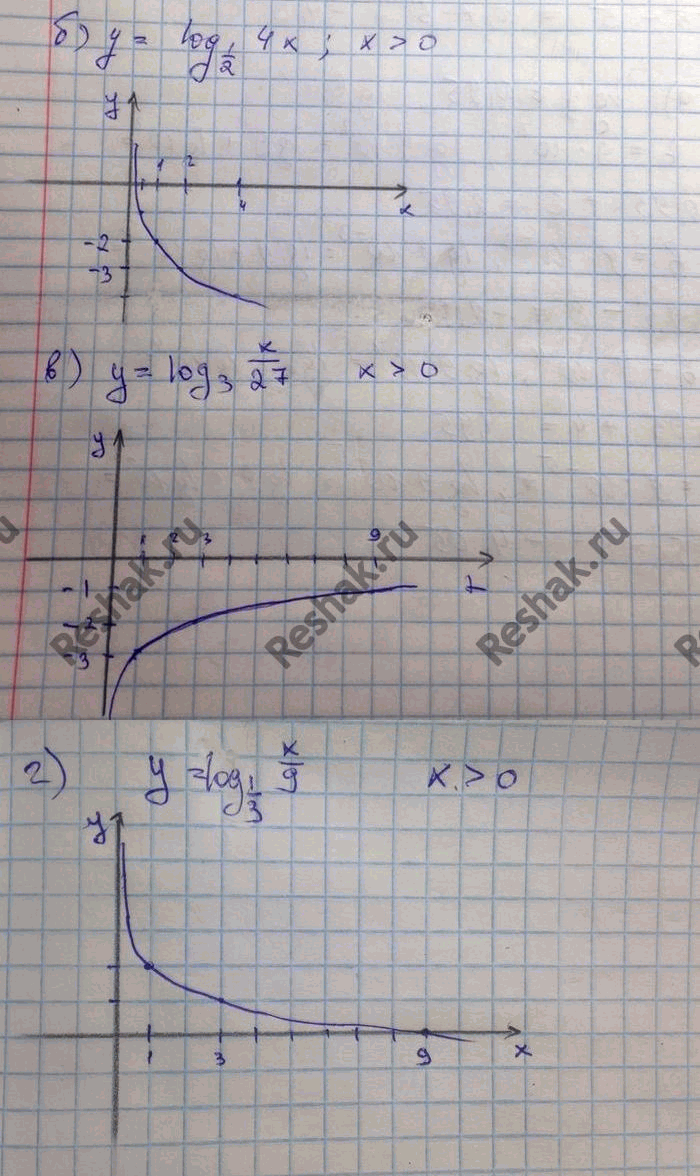 б) y = log_{1/2} 4x ; x > 0
y
1 2
4
x
-2
-3
в) y = log_3 x/27 x > 0
y
1 2 3 9
x
-1
-2
-3
Reshak.ru Reshak.ru Reshak.ru
г) y = log_{1/3} x/9 x > 0
y
1 3 9 x